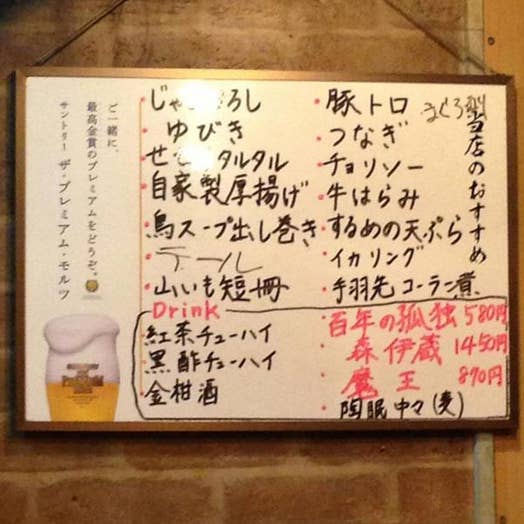 当店のおすすめ
・豚トロ
・つなぎ
・チョリソー
・牛はらみ
・するめの天ぷら
・イカリング
・手羽先コーラ煮
ろし
ゆびき
タルタル
自家製厚揚げ
鳥スープ出し巻き
テール
山いも短冊
Drink
紅茶チューハイ
黒酢チューハイ
金柑酒
・百年の孤独 580円
森伊蔵 1450円
・魔王 890円
・陶眠中々(麦)
ご一緒に、
最高金賞のプレミアムをどうぞ。
サントリー ザ・プレミアム・モルツ